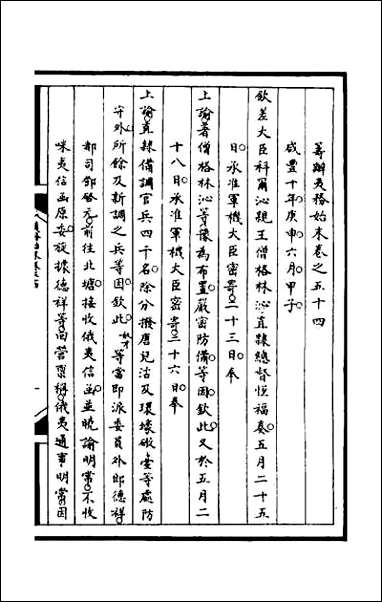 籌辦夷務始末卷之五十四
咸豐十年庚申六月甲子
欽差大臣科爾沁親王僧格林沁直隸總督恒福奏五月二十五
日承准軍機大臣密寄二十三日奉
上諭著僧格林沁等豫為布置嚴密防備等因欽此又於五月二
十八日承准軍機大臣密寄二十六日奉
上諭直隸備調官兵四千名除分撥唐兒沽及環壕礮臺等處防
守外所餘及新調之兵等因欽此奴才等當即派委員外郎德祥
都司鄧啓元前往北塘接收俄夷信函並曉諭明常不收
咪夷信函原委旋據德祥等回營稟稱俄夷通事明常因